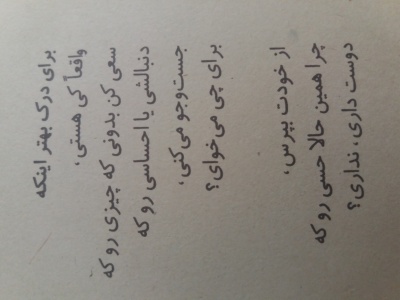 برای درک بهتر اینکه
واقعاً کی هستی،
سعی کن بدونی که چیزی رو که
دنبالشی یا احساسی رو که
جست‌وجو می‌کنی،
برای چی می‌خوای؟
از خودت بپرس،
چرا همین حالا حسی رو که
دوست داری، نداری؟